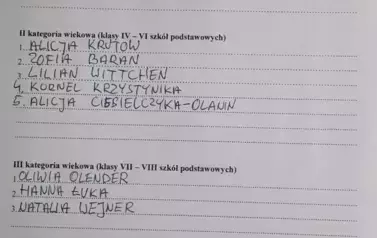 II kategoria wiekowa (klasy IV – VI szkół podstawowych)
1. ALICJA KRUTOW
2. ZOFIA BARAN
3. LILIAN WITTCHEN
4. KORNEL KRZYSTYNIKA
5. ALICJA CIESIELCZYKA-OLAUN
III kategoria wiekowa (klasy VII – VIII szkół podstawowych)
1. OLIWIA OLENDER
2. HANNA ŁUKA
3. NATALIA WEJNER